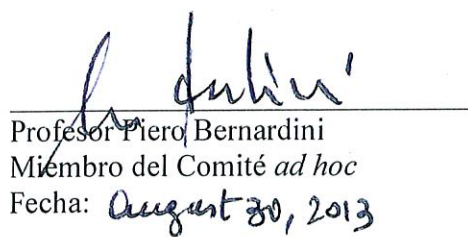 Profesor Piero Bernardini
Miembro del Comité ad hoc
Fecha: August 30, 2013